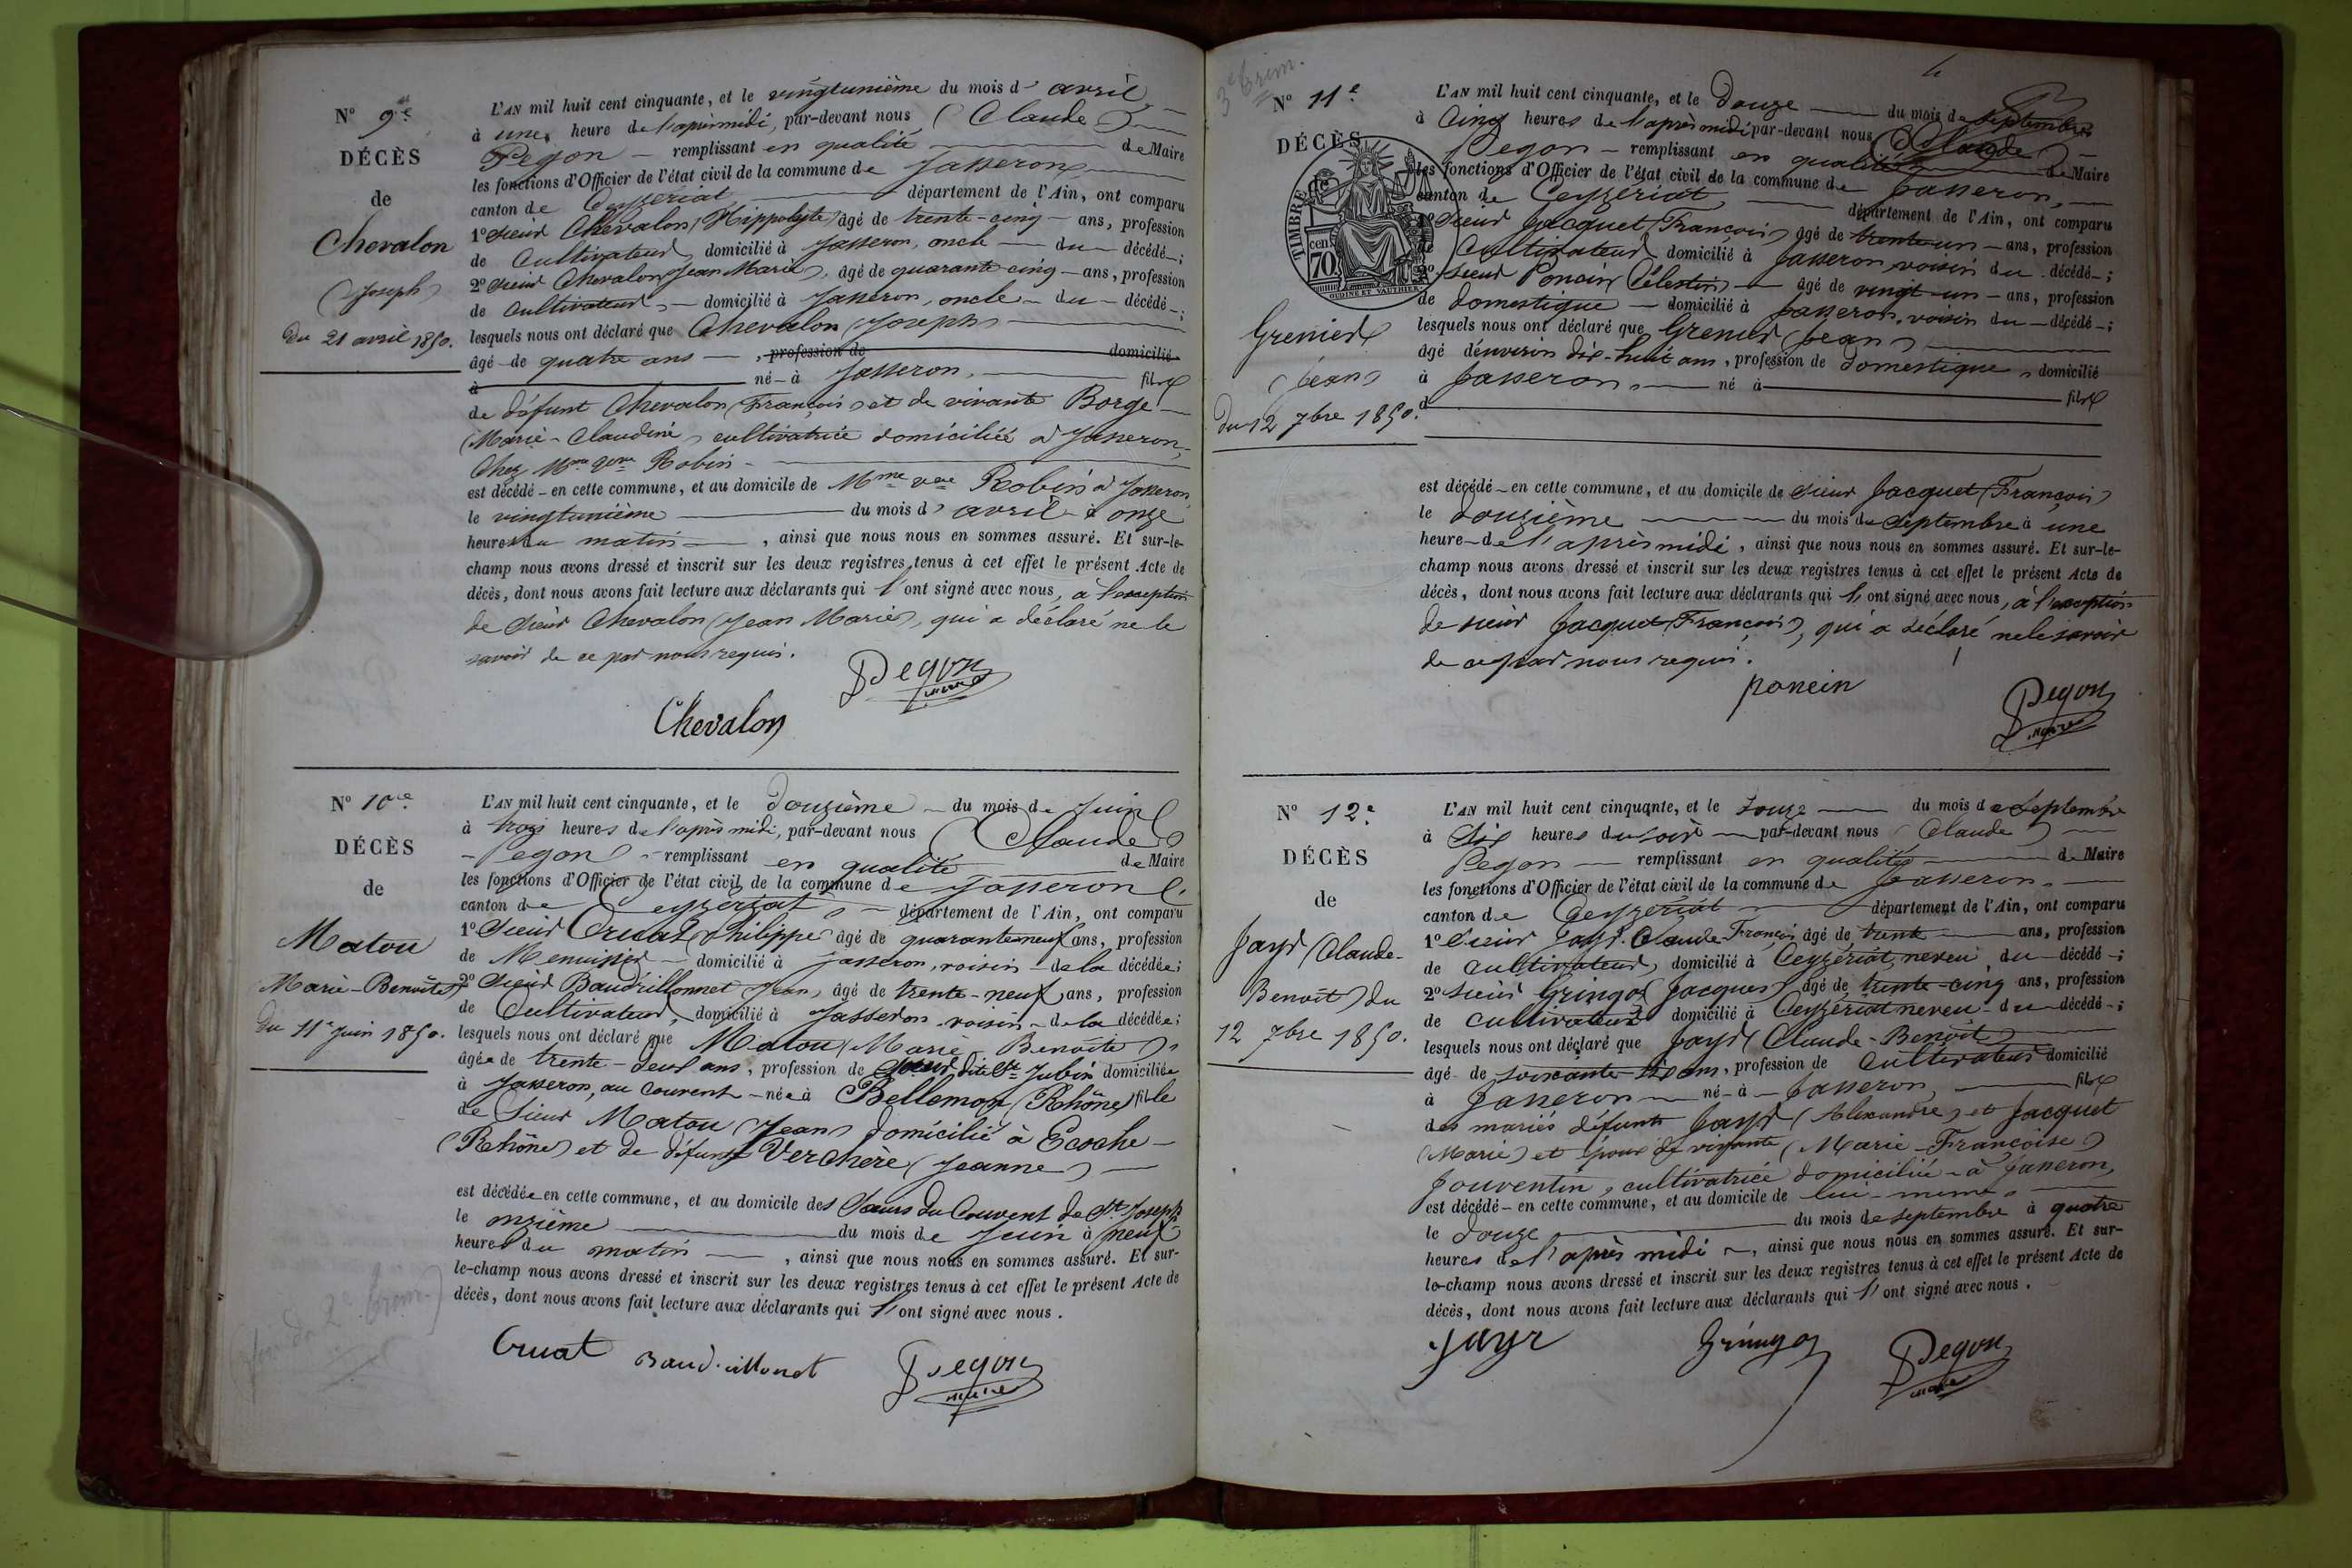 N° 9e
DÉCÈS
de
Chevalon
(Joseph)
Du 21 avril 1850.
L'AN mil huit cent cinquante, et le vingtunième du mois d'avril
à une heure de l'après midi, par-devant nous (Claude)
Pegon remplissant en qualité de Maire
les fonctions d'Officier de l'état civil de la commune de Jasseron
canton de Ceyzériat département de l'Ain, ont comparu
1° Sieur Chevalon (Hippolyte) âgé de trente-cinq ans, profession
de Cultivateur, domicilié à Jasseron, oncle du décédé ;
2° Sieur Chevalon (Jean Marie), âgé de quarante-cinq ans, profession
de Cultivateur, domicilié à Jasseron, oncle du décédé ;
lesquels nous ont déclaré que Chevalon (Joseph)
âgé de quatre ans, profession de domicilié
à né à Jasseron, fils
de défunt Chevalon (François) et de vivante Borge
(Marie-Claudine) cultivatrice domiciliée à Jasseron,
Chez Mme veuve Robin
est décédé en cette commune, et au domicile de Mme veve Robin à Jasseron
le vingtunième du mois d'avril à onze
heures du matin, ainsi que nous nous en sommes assuré. Et sur-le-
champ nous avons dressé et inscrit sur les deux registres tenus à cet effet le présent Acte de
décès, dont nous avons fait lecture aux déclarants qui l'ont signé avec nous, à l'exception
de Sieur Chevalon (Jean Marie), qui a déclaré ne le
savoir de ce par nous requis.
Pegon
maire
Chevalon
N° 10e
DÉCÈS
de
Matou
Marie-Benoîte)
Du 11e juin 1850.
L'AN mil huit cent cinquante, et le douzième du mois de Juin
à trois heures de l'après midi, par-devant nous (Claude)
Pegon remplissant en qualité de Maire
les fonctions d'Officier de l'état civil de la commune de Jasseron
canton de Ceyzériat département de l'Ain, ont comparu
1° Sieur Cruat (Philippe) âgé de quarante-neuf ans, profession
de Menuisier domicilié à Jasseron, voisin de la décédée ;
2° Sieur Baudrillonnet Jean, âgé de trente-neuf ans, profession
de Cultivateur, domicilié à Jasseron voisin de la décédée ;
lesquels nous ont déclaré que Matou (Marie Benoîte)
âgée de trente-deux ans, profession de Soeur dite Ste Jubin domiciliée
à Jasseron, au couvent née à Bellemont (Rhône) fille
de Sieur Matou (Jean) domicilié à Ecoche
(Rhône) et de défunte Verchère (Jeanne)
est décédée en cette commune, et au domicile des Sœurs du Couvent de St Joseph
le onzième du mois de Juin à neuf
heures du matin, ainsi que nous nous en sommes assuré. Et sur-
le-champ nous avons dressé et inscrit sur les deux registres tenus à cet effet le présent Acte de
décès, dont nous avons fait lecture aux déclarants qui l'ont signé avec nous.
2e trim.
Cruat Baudrillonet Pegon
maire
3e trim.
4
N° 11e
DÉCÈS
de
TIMBRE
cen
70
OUDINÉ ET VAUTHIER
Grenier
(Jean)
Du 12 7bre 1850.
L'AN mil huit cent cinquante, et le Douze du mois de septembre
à Cinq heures de l'après midi par-devant nous (Claude)
Pegon remplissant en qualité de Maire
les fonctions d'Officier de l'état civil de la commune de Jasseron,
canton de Ceyzériat, département de l'Ain, ont comparu
1° Sieur Jacquet (François) âgé de trente-un ans, profession
de Cultivateur domicilié à Jasseron, voisin du décédé ;
2° Sieur Poncin (Célestin) âgé de vingt-un ans, profession
de domestique domicilié à Jasseron, voisin du décédé ;
lesquels nous ont déclaré que Grenier (Jean)
âgé d'environ dix-huit ans, profession de domestique, domicilié
à Jasseron, né à fils
d
est décédé en cette commune, et au domicile de sieur Jacquet (François)
le douzième du mois de septembre à une
heure de l'après midi, ainsi que nous nous en sommes assuré. Et sur-le-
champ nous avons dressé et inscrit sur les deux registres tenus à cet effet le présent Acte de
décès, dont nous avons fait lecture aux déclarants qui l'ont signé avec nous, à l'exception
de sieur Jacquet (François), qui a déclaré ne le savoir
de ce par nous requis.
poncin
Pegon
maire
N° 12e
DÉCÈS
de
Jayr (Claude-
Benoît) du
12 7bre 1850.
L'AN mil huit cent cinquante, et le douze du mois de Septembre
à Six heures du soir par-devant nous (Claude)
Pegon remplissant en qualité de Maire
les fonctions d'Officier de l'état civil de la commune de Jasseron,
canton de Ceyzériat département de l'Ain, ont comparu
1° Sieur Jayr Claude-François âgé de trente ans, profession
de cultivateur, domicilié à Ceyzériat, neveu du décédé ;
2° Sieur Gringoz (Jacques) âgé de trente-cinq ans, profession
de cultivateur domicilié à Ceyzériat neveu du décédé ;
lesquels nous ont déclaré que Jayr (Claude-Benoît)
âgé de soixante ans, profession de cultivateur domicilié
à Jasseron né à Jasseron, fils
des mariés défunts Jayr (Alexandre) et Jacquet
(Marie) et époux de vivante (Marie-Françoise)
Jouventin, cultivatrice domiciliée à Jasseron,
est décédé en cette commune, et au domicile de lui-même,
le douze du mois de septembre à quatre
heures de l'après midi, ainsi que nous nous en sommes assuré. Et sur-
le-champ nous avons dressé et inscrit sur les deux registres tenus à cet effet le présent Acte de
décès, dont nous avons fait lecture aux déclarants qui l'ont signé avec nous.
Jayr Gringoz Pegon
maire